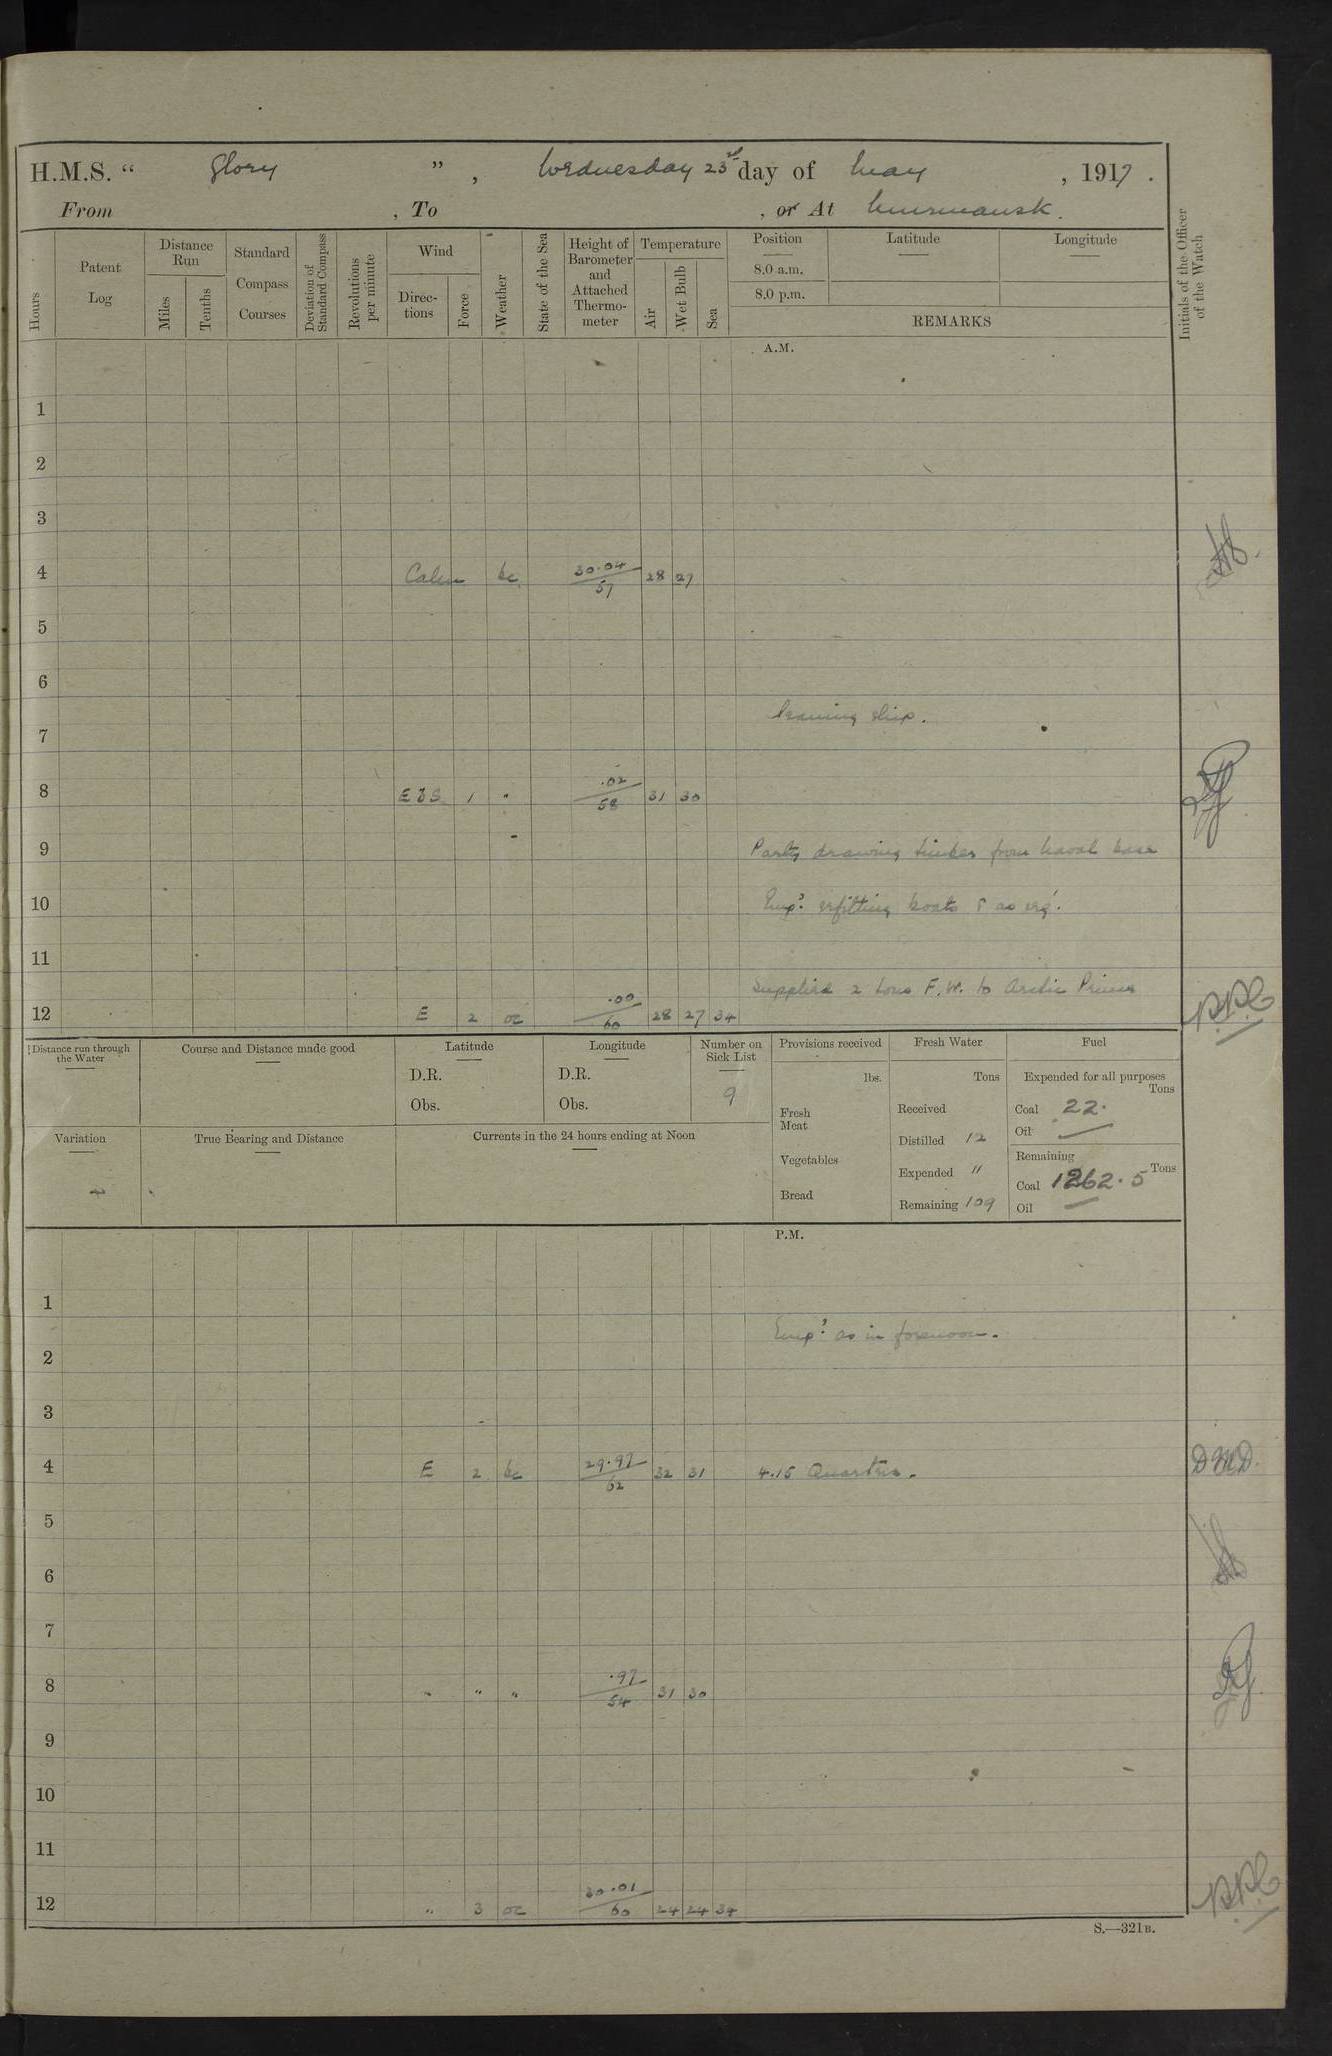 H.M.S. " Glory ", Wednesday 23rd day of May, 1917.
From , To , or At Murmansk.
Hours
Patent Log
Distance Run
Miles
Tenths
Standard Compass Courses
Deviation of Standard Compass
Revolutions per minute
Wind
Directions
Force
Weather
State of the Sea
Height of Barometer and Attached Thermometer
Temperature
Air
Wet Bulb
Sea
Position
8.0 a.m.
8.0 p.m.
Latitude
Longitude
REMARKS
Initials of the Officer of the Watch
A.M.
1
2
3
4 Calm bc 30.04 57 28 27
5
6
Cleaning ship.
7
8 E b S 1 " .02 58 31 30
9 Party drawing timber from Naval base
10 Empd. refitting boats & as req.
11
Supplied 2 tons F.W. to Arctic Prince
12 E 2 oc .00 60 28 27 34
Distance run through the Water
Course and Distance made good
Latitude
D.R.
Obs.
Longitude
D.R.
Obs.
Number on Sick List
9
Provisions received
lbs.
Fresh Meat
Vegetables
Bread
Fresh Water
Tons
Received
Distilled 12
Expended "
Remaining 109
Fuel
Expended for all purposes
Tons
Coal 22.
Oil
Remaining
Tons
Coal 1262.5
Oil
Variation
True Bearing and Distance
Currents in the 24 hours ending at Noon
P.M.
1
Empd. as in forenoon.
2
3
4 E 2 bc 29.97 62 32 31 4.15 Quarters.
5
6
7
8 " " " .97 54 31 30
9
10
11
12 " 3 oc 30.01 60 24 24 34
S.—321B.